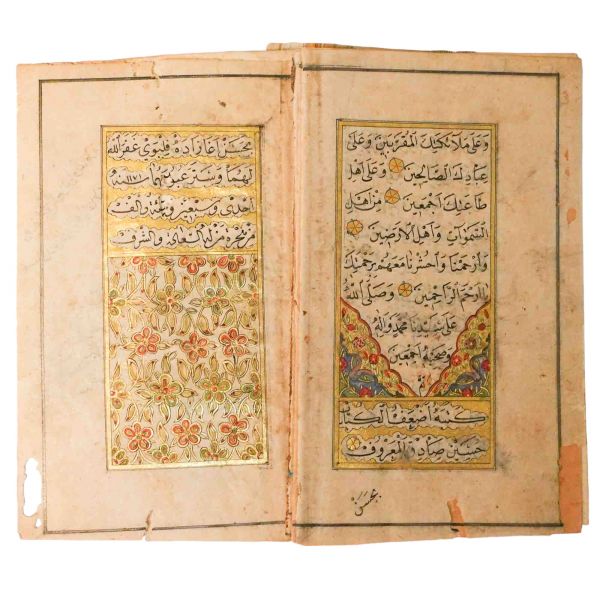 وَعَلَى مَلَائِكَتِكَ الْمُقَرَّبِينَ وَعَلَى
عِبَادِكَ الصَّالِحِينَ وَعَلَى اَهْلِ
طَاعَتِكَ اَجْمَعِينَ مِنْ اَهْلِ
السَّمٰوَاتِ وَاَهْلِ الْاَرَضِينَ
وَارْحَمْنَا وَاحْشُرْنَا مَعَهُمْ بِرَحْمَتِكَ
يَا اَرْحَمَ الرَّاحِمِينَ وَصَلَّى اللّٰهُ
عَلَى سَيِّدِنَا مُحَمَّدٍ وَاٰلِهِ
وَصَحْبِهِ اَجْمَعِينَ
م
كتبه اضعف الكتاب
حسين صادق المعروف
بحسن
بحسن اغا زاده غفر الله
لهما وستر عيوبهما ١١٧١ سنه
احدى وسبعين ومائة والف
من هجرة من له والشرف